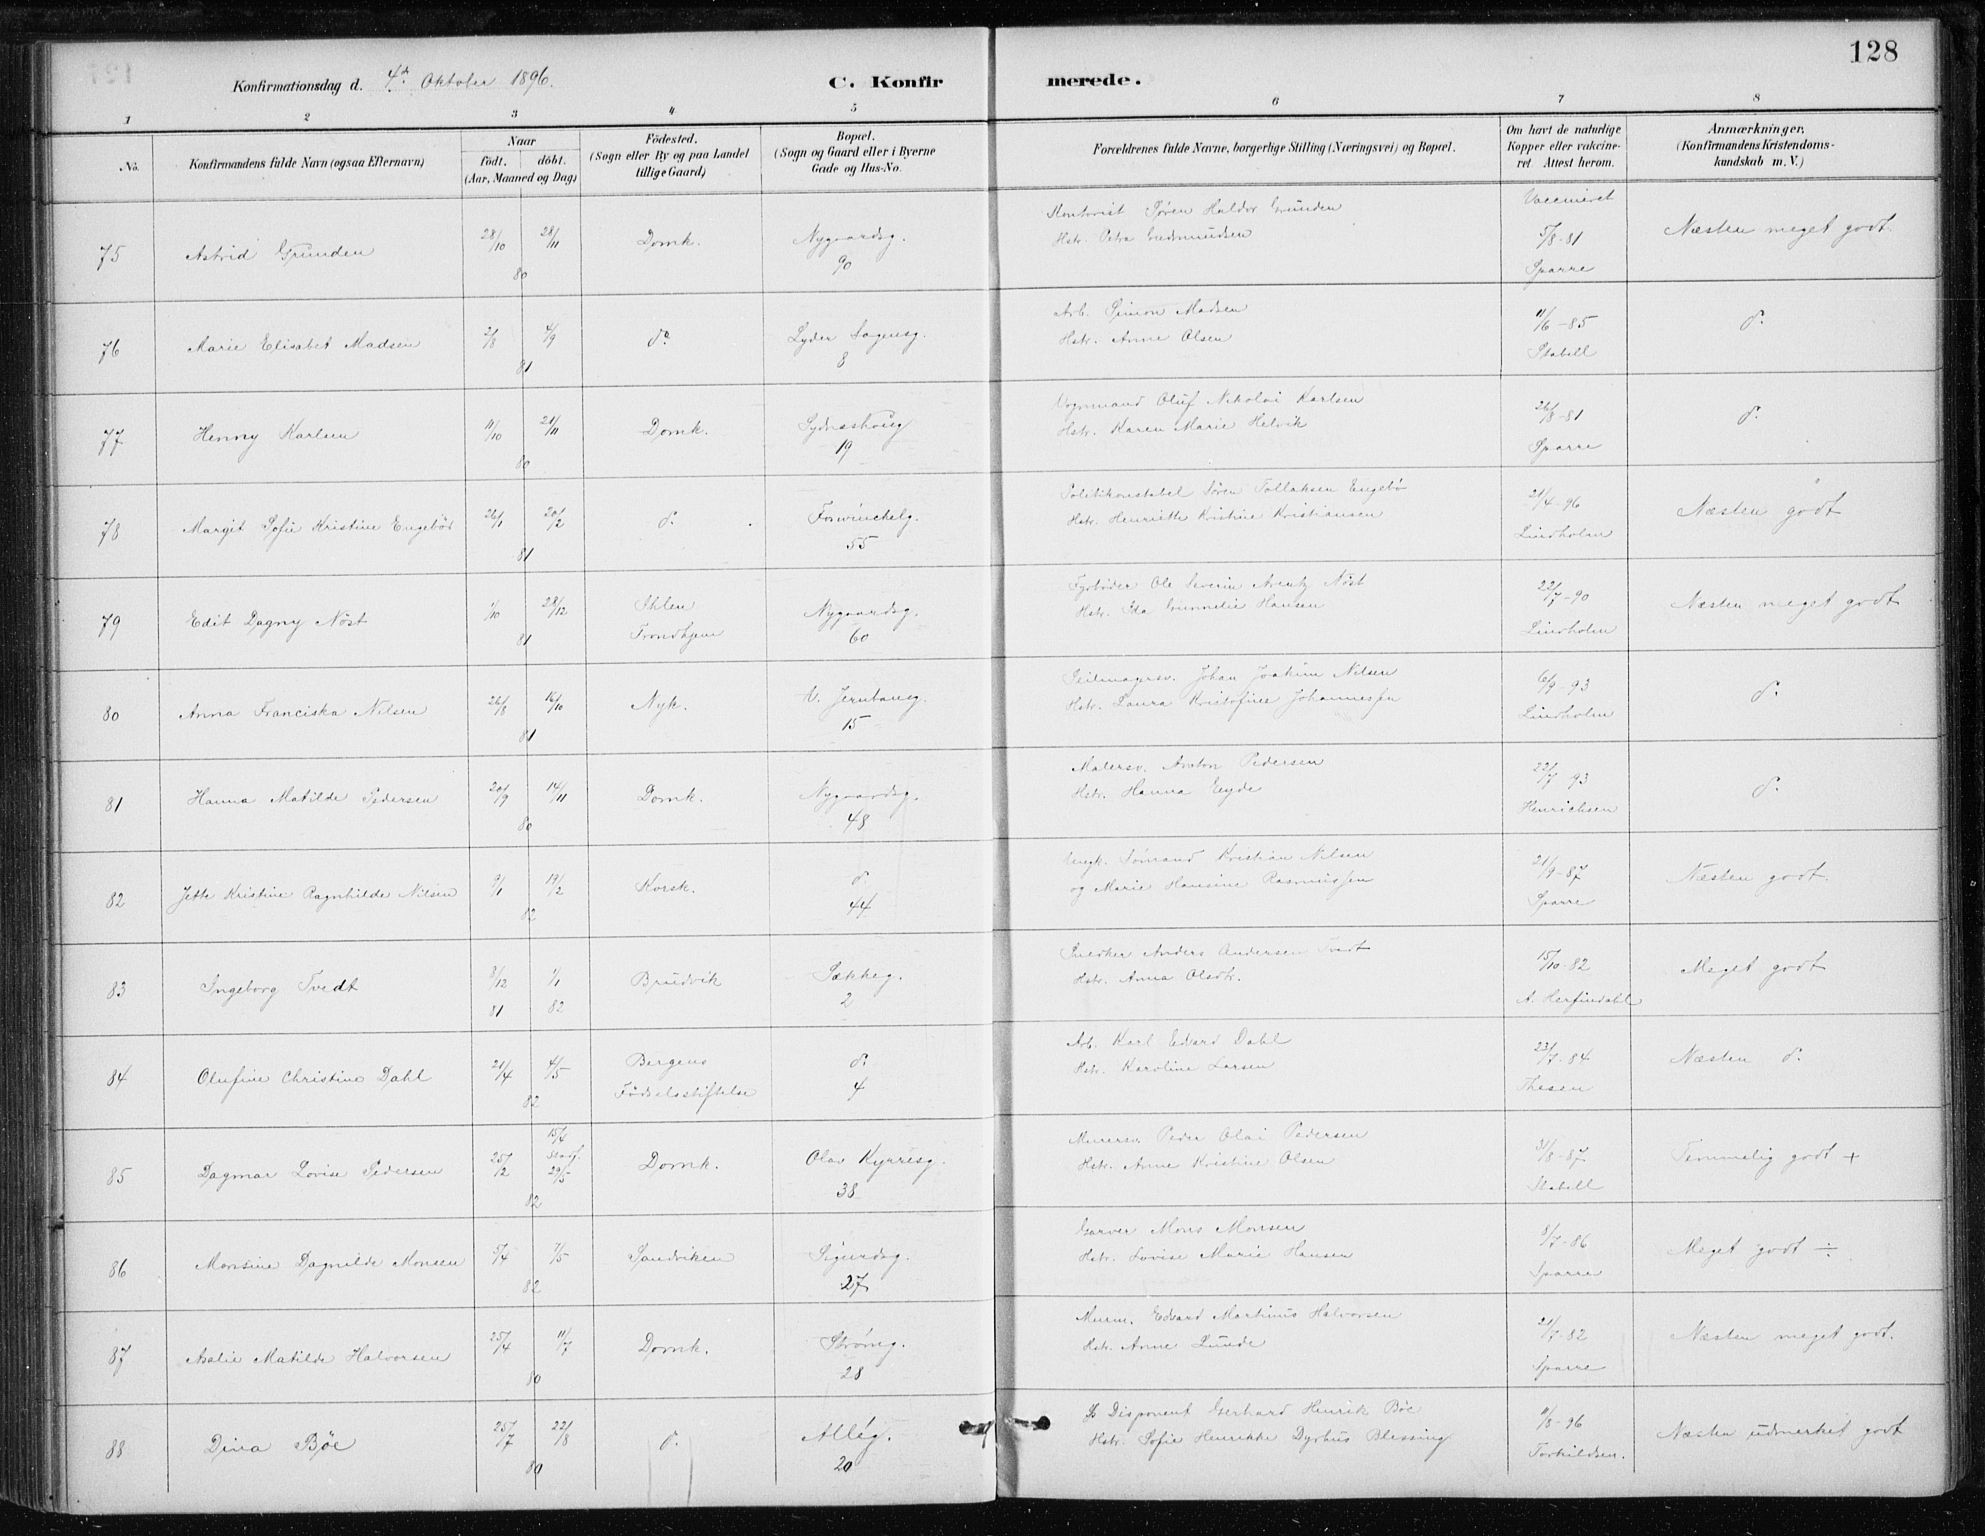 128
Konfirmationsdag d. 4de Oktober 1896.
C. Konfirmerede.
1 2 3 4 5 6 7 8
No.
Konfirmandens fulde Navn (ogsaa Efternavn)
Naar
födt. döbt.
(Aar, Maaned og Dag)
Födested.
(Sogn eller By og paa Landet
tillige Gaard)
Bopæl.
(Sogn og Gaard eller i Byerne
Gade og Hus-No.
Forældrenes fulde Navne, borgerlige Stilling (Næringsvei) og Bopæl.
Om havt de naturlige
Kopper eller vakcine-
ret. Attest herom.
Anmærkninger.
(Konfirmandens Kristendoms-
kundskab m. V.)
75 Astrid Grunden 28/10 28/11 80 Domk. Nygaardsg. 90
Kontorist Sören Haldor Grunden
Hstr. Petra Gudmundsen
Vaccineret 5/8-81 Sparre
Næsten meget godt.
76 Marie Elisabet Madsen 2/8 4/9 81 do Lyder Sagensg. 8
Arb. Simon Madsen
Hstr. Anne Olsen
11/6-85 Stabell
do
77 Henny Karlsen 11/10 21/11 80 Domk. Sydneshoug 19
Vognmand Oluf Nikolai Karlsen
Hstr. Karen Marie Helvik
26/8-81 Sparre
do
78 Margit Sofie Kristine Engebös 26/1 20/2 81 do Fosvinckelg. 55
Politikonstabel Sören Tollaksen Engebö
Hstr. Henriette Kristine Kristiansen
21/4-96 Lindholm
Næsten godt
79 Edit Dagny Nöst 1/10 28/12 81 Ihlen Trondhjem Nygaardsg. 60
Fyrböder Ole Severin Arentz Nöst
Hstr. Ida Gunnelie Hansen
22/7-90 Lindholm
Næsten meget godt
80 Anna Franciska Nilsen 26/8 16/10 81 Nyk. V. Jernbaneg. 15
Seilmagersv. Johan Joakim Nilsen
Hstr. Laura Kristofine Johannessen
6/9-93 Lindholm
do
81 Hanna Matilde Pedersen 20/9 14/11 80 Domk. Nygaardsg. 48
Malersv. Anton Pedersen
Hstr. Hanna Eyde
22/7 93 Henrichsen
do
82 Jette Kristine Ragnhilde Nilsen 9/1 19/2 82 Korsk. do 44
Ungk. Sömand Kristian Nilsen
og Marie Hansine Rasmussen
21/9-87 Sparre
Næsten godt.
83 Ingeborg Tvedt 8/12 81 1/1 82 Brudvik Sækkeg. 2
Snedker Anders Andersen Tvedt
Hstr. Anna Olsdtr.
15/10-82 A. Herfindahl
Meget godt
84 Olufine Christine Dahl 21/4 4/5 82 Bergens Födselsstiftelse do 4
Arb. Karl Edvard Dahl
Hstr. Karoline Larsen
23/7-84 Thesen
Næsten do
85 Dagmar Lovise Pedersen 25/2 15/4 Stadf. 29/5 82 Domk. Olav Kyrresg. 38
Murersv. Peder Olai Pedersen
Hstr. Anne Kristine Olsen
31/8-87 Stabell
Temmelig godt +
86 Monsine Dagnilde Monsen 5/4 7/5 82 Sandviken Sigurdsg. 27
Garver Mons Monsen
Hstr. Lovise Marie Hansen
8/7-86 Sparre
Meget godt ÷
87 Aslie Matilde Halvorsen 25/4 11/7 80 Domk. Strömg. 28
Murm. Edvard Martinus Halvorsen
Hstr. Anne Lunde
21/7-82 Sparre
Næsten meget godt.
88 Dina Böe 25/7 22/8 80 do Alleg. 20
Disponent Gerhard Henrik Böe
Hstr. Sofie Henrikke Dyrhus Blessing
11/8-96 Torkildsen.
Næsten udmerket godt